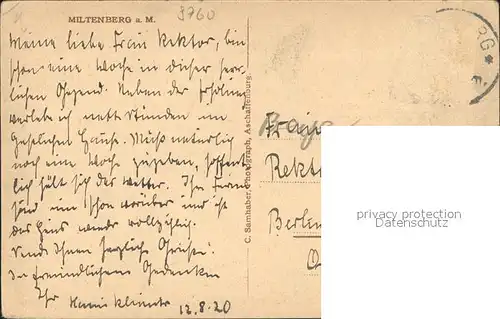 MILTENBERG a. M.
3760
Meine liebe Frau Rektor, bin
schon eine Woche in dieser herr-
lichen Gegend. Neben der Erholung
verlebe ich nette Stunden im
Hause. Muß natürlich
noch eine Woche zugeben, hoffent-
lich hält sich das Wetter.
sind nun schon vorüber und ist
das Haus wieder vollzählig.
Sende Ihnen herzliche Grüße.
In freundlichem Gedenken
Ihr
12.8.20
C. Samhaber, Photograph, Aschaffenburg.
RG
Frau
Rekt
Berlin
privacy protection
Datenschutz